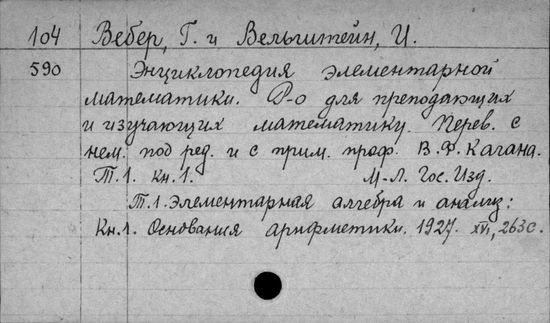 104 Вебер, Г. и Вельштейн, И.
590 Энциклопедия элементарной
математики. Р-о для преподающих
и изучающих математику. Перев. с
нем. под ред. и с прим. проф. В.Ф. Кагана.
Т.1. кн.1. М-Л. Гос. Изд.
Т.1. Элементарная алгебра и анализ:
Кн.1. Основания арифметики. 1927. XVI, 263 с.